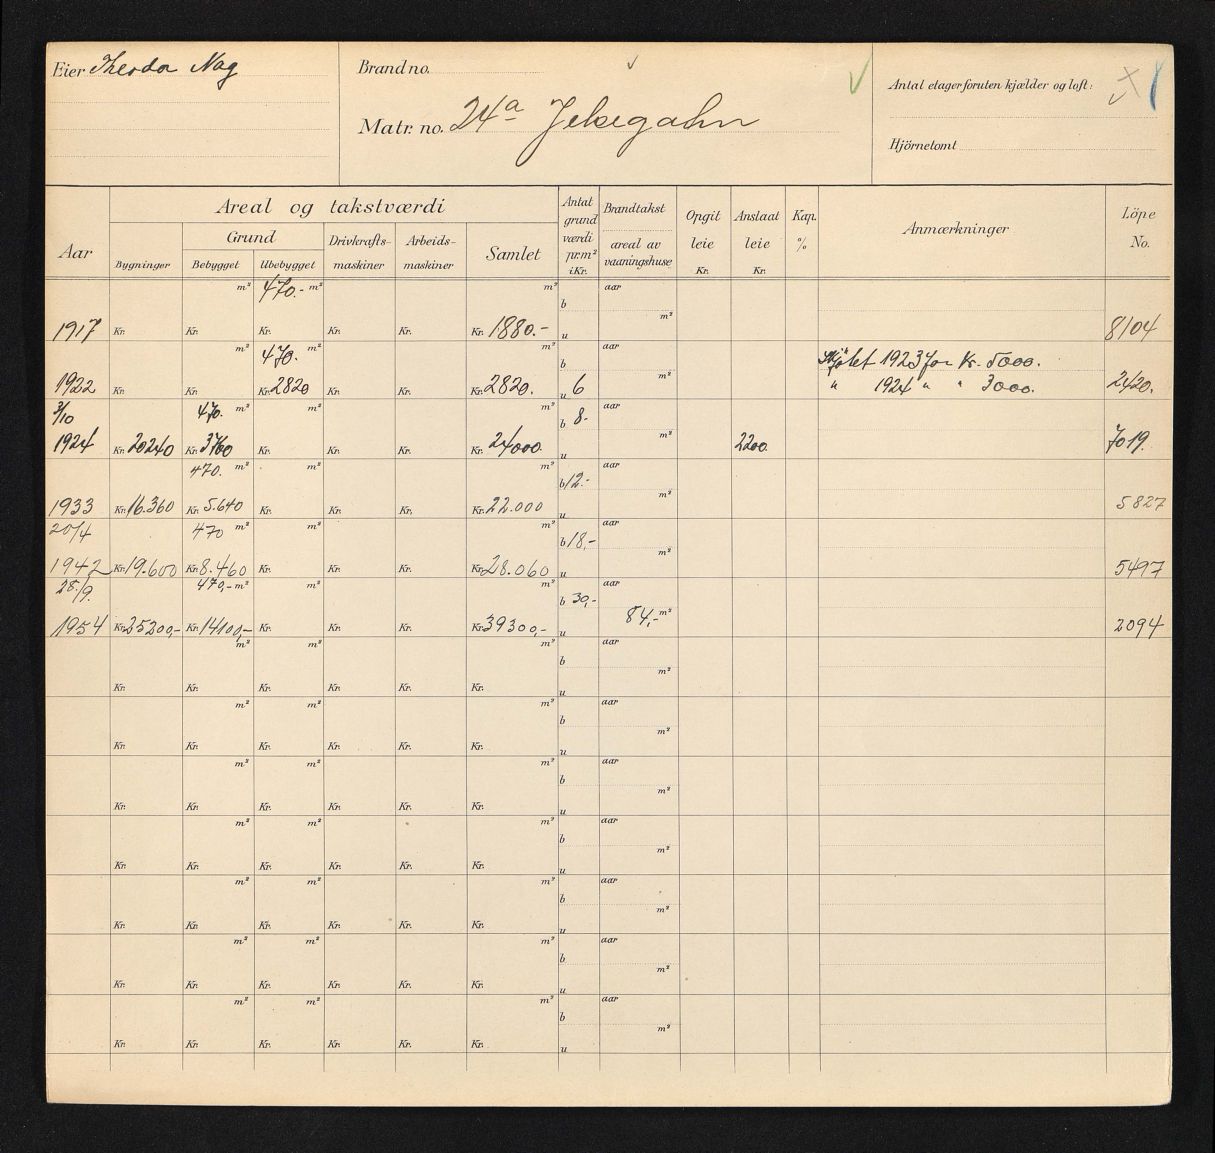 Eier Theodor Nag
Brand no.
Matr. no. 24a Jekegaten
Antal etager foruten kjælder og loft:
Hjörnetomt
Aar
Areal og takstværdi
Bygninger
Grund
Bebygget Ubebygget
Drivkrafts-maskiner
Arbeids-maskiner
Samlet
Antal grund værdi pr.m² i Kr.
Brandtakst
areal av vaaningshuse
Opgit leie Kr.
Anslaat leie Kr.
Kap. %
Anmærkninger
Löpe No.
m² 470.- m² m² b aar
1917 Kr. Kr. Kr. Kr. Kr. Kr. 1880.- u m² 8104
m² 470. m² m² b aar Skjøtet 1923 for Kr. 5000.
1922 Kr. Kr. Kr. 2820 Kr. Kr. Kr. 2820. u 6 m² " 1924 " " 3000. 2420.
3/10 470. m² m² m² b 8.- aar
1924 Kr. 20240 Kr. 3760 Kr. Kr. Kr. Kr. 24000. u m² 2200. 7019.
470. m² m² m² b 12.- aar
1933 Kr. 16.360 Kr. 5.640 Kr. Kr. Kr. Kr. 22.000 u m² 5827
20/4 470 m² m² m² b 18,- aar
1942 Kr. 19.600 Kr. 8.460 Kr. Kr. Kr. Kr. 28.060 u m² 5497
28/9. 470,- m² m² m² b 30,- aar
1954 Kr. 25200,- Kr. 14100,- Kr. Kr. Kr. Kr. 39300,- u 84,- m² 2094
m² m² m² b aar
Kr. Kr. Kr. Kr. Kr. Kr. u m²
m² m² m² b aar
Kr. Kr. Kr. Kr. Kr. Kr. u m²
m² m² m² b aar
Kr. Kr. Kr. Kr. Kr. Kr. u m²
m² m² m² b aar
Kr. Kr. Kr. Kr. Kr. Kr. u m²
m² m² m² b aar
Kr. Kr. Kr. Kr. Kr. Kr. u m²
m² m² m² b aar
Kr. Kr. Kr. Kr. Kr. Kr. u m²
m² m² m² b aar
Kr. Kr. Kr. Kr. Kr. Kr. u m²